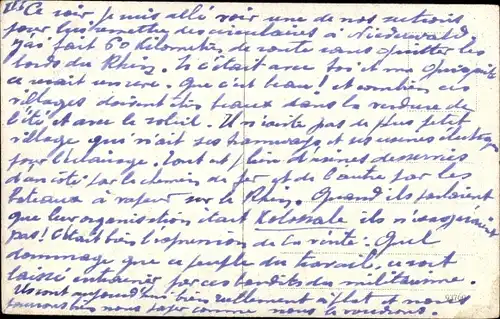 Ce soir je suis allé voir une de nos sections
pour lui remettre des circulaires à Niederwald
j'ai fait 60 kilomètres de route sans quitter les
bords du Rhin. Il était avec
ce encore. Que c'est beau! et combien ces
villages doivent être beaux dans la verdure de
l'été et avec le soleil. Il n'existe pas de plus petit
village qui n'ait ses tramways et ses usines électriques
pour l'éclairage. Tout est plein d'usines desservies
d'un côté par le chemin de fer et de l'autre par les
bateaux à vapeur sur le Rhin. Quand ils parlaient
que leur organisation était Kolossale ils n'exagéraient
pas! C'était bien l'expression de la vérité. Quel
dommage que ce peuple du travail, se soit
laissé entraîner par ces bandits du militarisme.
Ils sont aujourd'hui bien réellement à plat et nous
pouvons bien nous taper comme nous le voudrons.